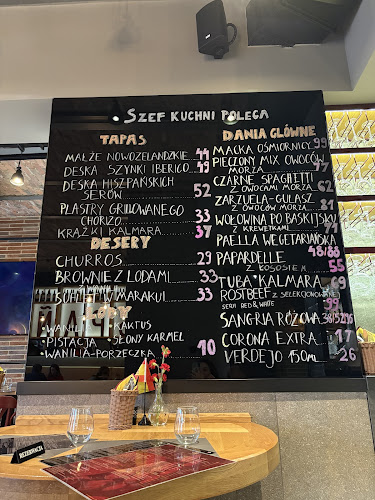 SZEF KUCHNI POLECA
TAPAS
MAŁŻE NOWOZELANDZKIE 44
DESKA SZYNKI IBERICO 49
DESKA HISZPAŃSKICH
SERÓW 52
PLASTRY GRILLOWANEGO
CHORIZO 33
KRĄŻKI KALMARA 37
DESERY
CHURROS 29
BROWNIE Z LODAMI 33
SUFLET W MARAKUI 33
LODY
• WANILIA KAKTUS
• PISTACJA • SŁONY KARMEL
• WANILIA-PORZECZKA 10
DANIA GŁÓWNE
MACKA OŚMIORNICY 99
PIECZONY MIX OWOCÓW
MORZA
CZARNE SPAGHETTI
Z OWOCAMI MORZA 62
ZARZUELA-GULASZ
Z OWOCÓW MORZA
WOŁOWINA PO BASKIJSKU
Z KREWETKAMI
PAELLA WEGETARIAŃSKA
48/88
PAPARDELLE
Z ŁOSOSIEM 55
TUBA KALMARA 69
ROSTBEEF Z SELEKCJONOWANEJ
SERII RED & WHITE
SANGRIA RÓŻOWA 38/52
CORONA EXTRA 17
VERDEJO 150ml 26
REZERWACJA